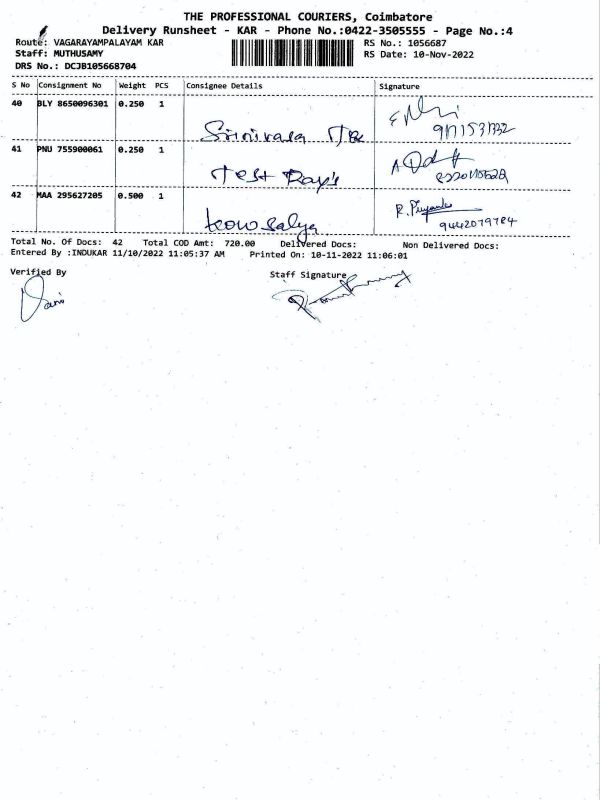 THE PROFESSIONAL COURIERS, Coimbatore
Delivery Runsheet - KAR - Phone No.:0422-3505555 - Page No.:4
Route: VAGARAYAMPALAYAM KAR RS No.: 1056687
Staff: MUTHUSAMY RS Date: 10-Nov-2022
DRS No.: DCJB105668704
S No Consignment No Weight PCS Consignee Details Signature
40 BLY 8650096301 0.250 1
Srinivasa
41 PNU 755900061 0.250 1
Test
42 MAA 295627205 0.500 1 R. Priyanka
kowsalya 9442079784
Total No. Of Docs: 42 Total COD Amt: 720.00 Delivered Docs: Non Delivered Docs:
Entered By :INDUKAR 11/10/2022 11:05:37 AM Printed On: 10-11-2022 11:06:01
Verified By Staff Signature